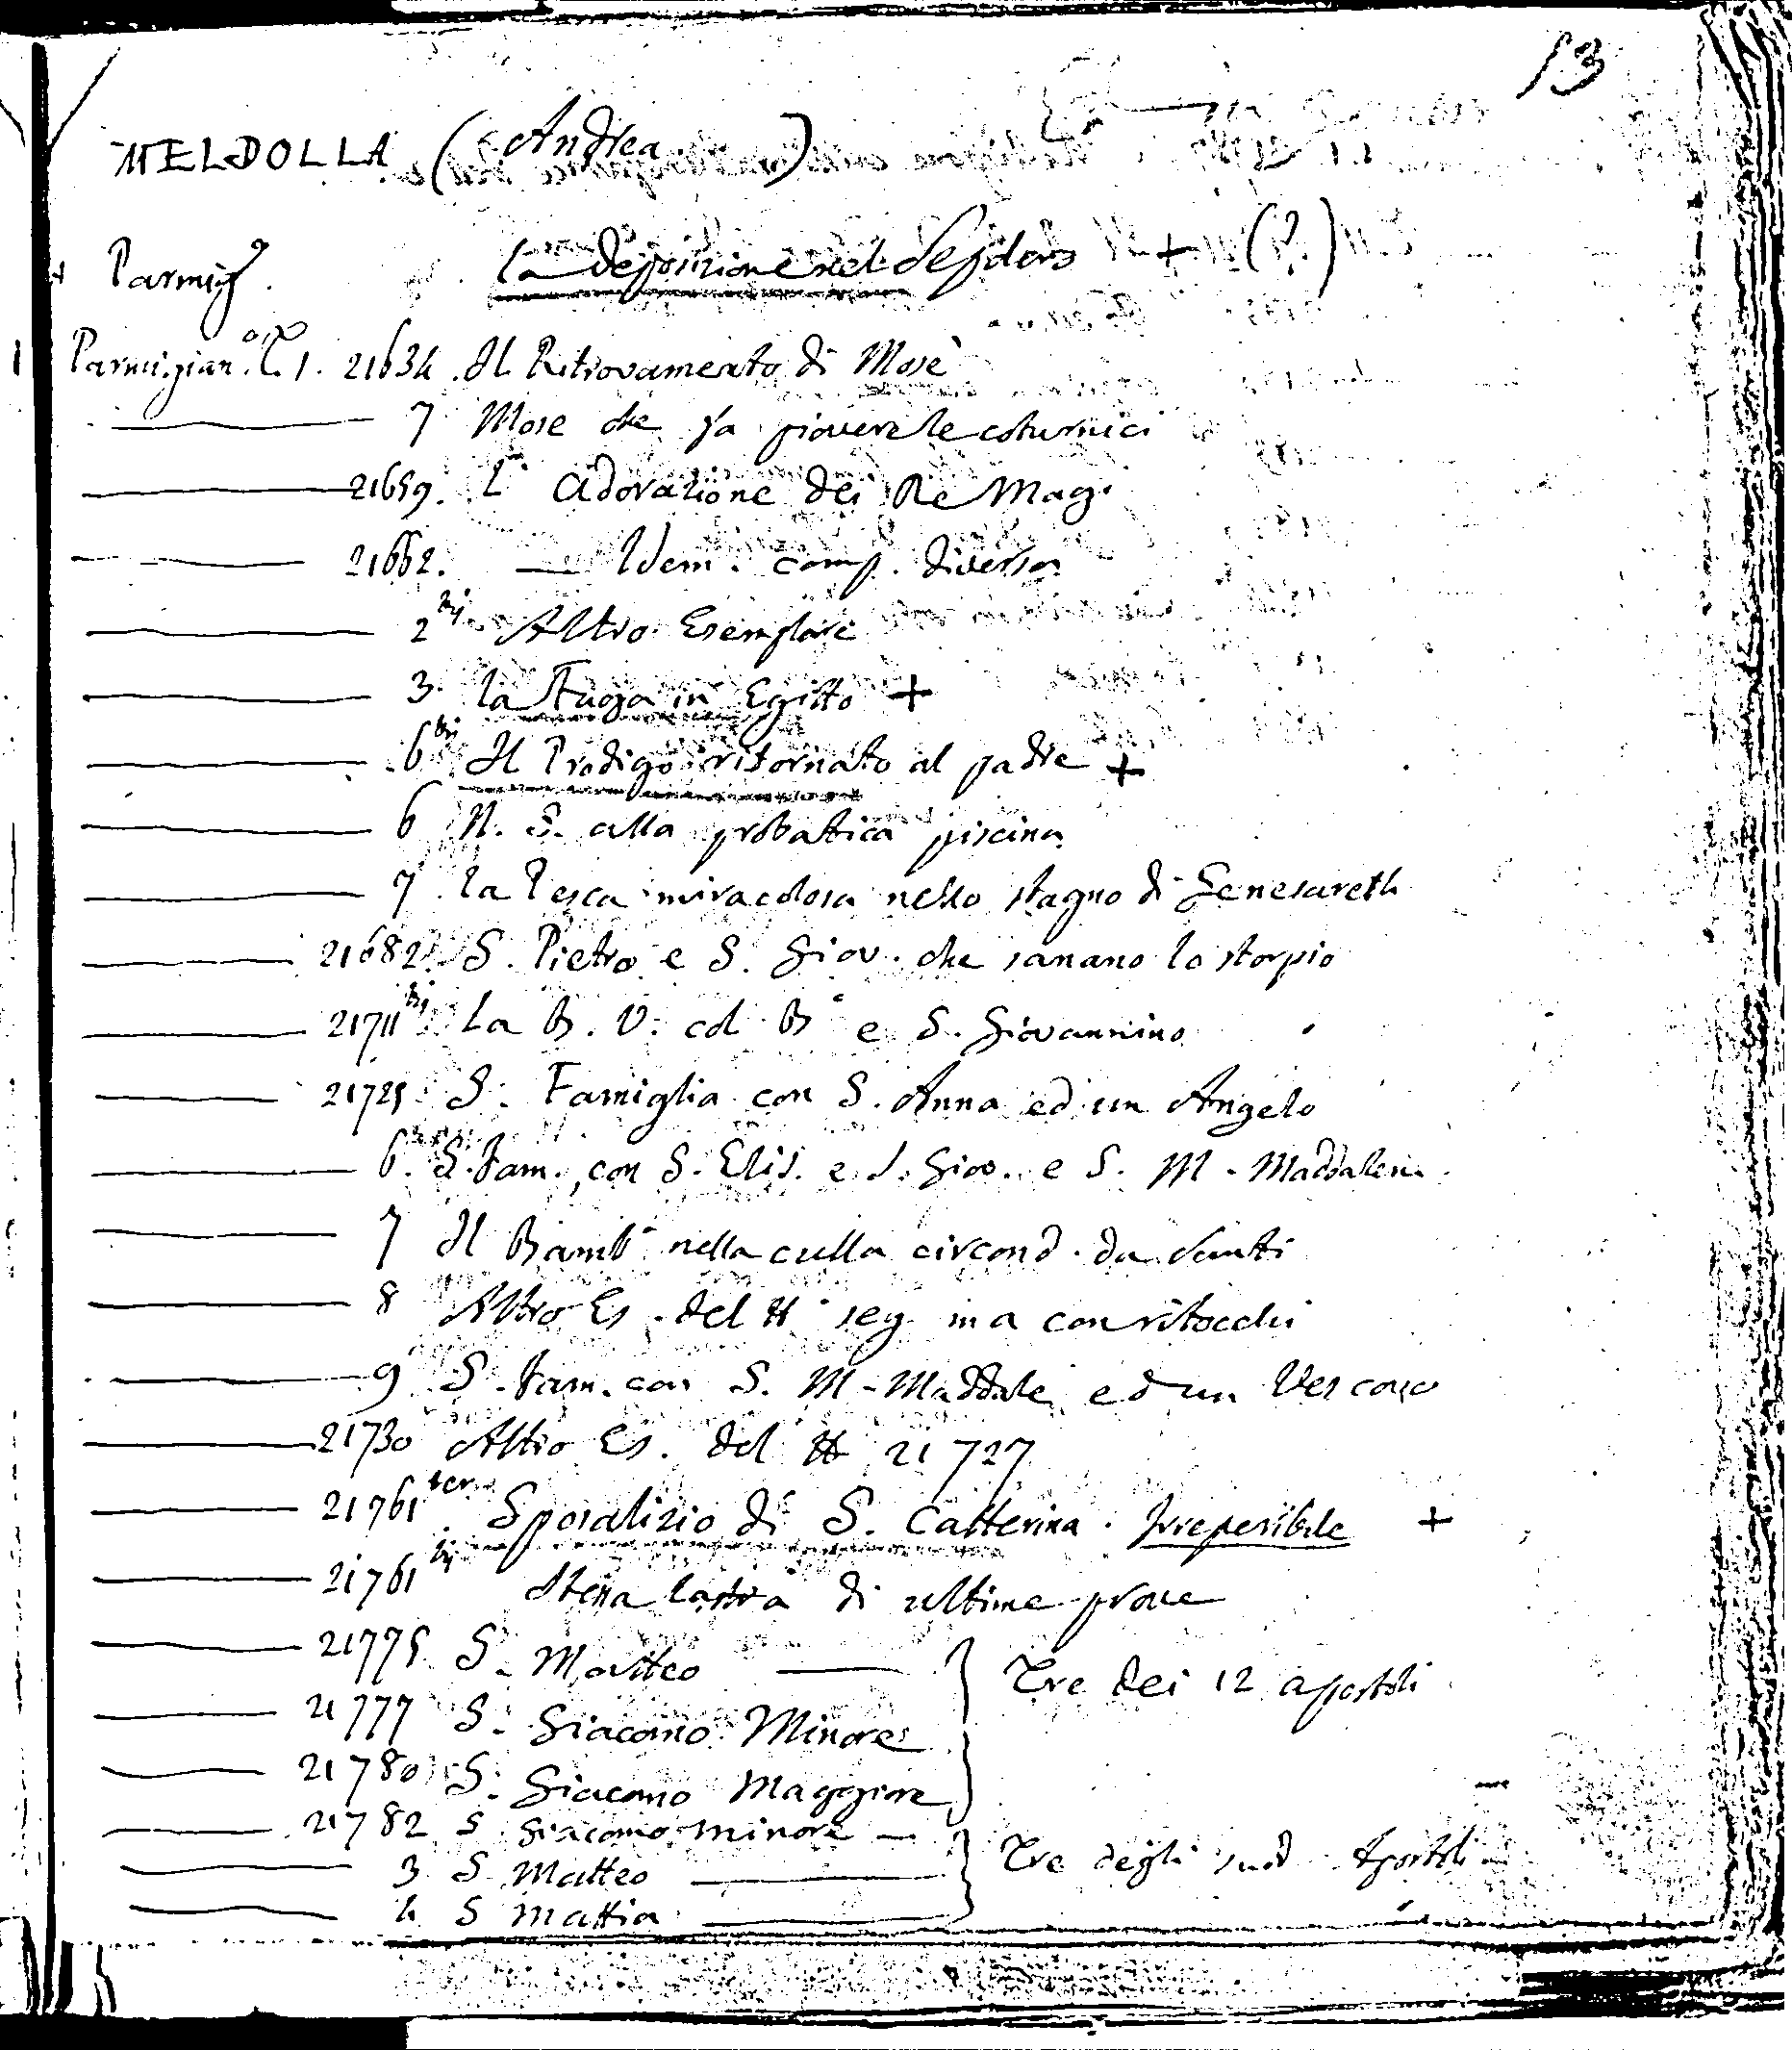 13
MELDOLLA (Andrea)
+ Parmig.° La Deposizione nel Sepolcro + (?)
Parmigian.° C. 1. 21634. Il Ritrovamento di Mosè
7 Mose che fa piovere le coturnici
21659. L' Adorazione dei Re Magi
21662. — Idem. comp. diversa
2 bis Altro Esemplare
3 La Fuga in Egitto +
6 bis Il Prodigo ritornato al padre +
6 N. S. alla probatica piscina
7 La Pesca miracolosa nello stagno di Genesareth
21682. S. Pietro e S. Giov. che sanano lo storpio
21711 bis La B. V. col B° e S. Giovannino
21725 S. Famiglia con S. Anna ed un Angelo
6. S. Fam. con S. Elis. e S. Giov. e S. M. Maddalena
7 Il Bamb° nella culla circond. da Santi
8 Altro Es. del N° seg. ma con ritocchi
9 S. Fam. con S. M. Maddale ed un Vescovo
21730 Altro Es. del N 21727
21761 ter Sposalizio di S. Catterina. Irreperibile +
21761 bis Stessa lastra di ultime prove
21775 S. Matteo — } Tre dei 12 apostoli
21777 S. Giacomo Minore
21780 S. Giacomo Maggiore
21782 S Giacomo minore — } Tre degli sud Apostoli
3 S. Matteo —
4 S Mattia —